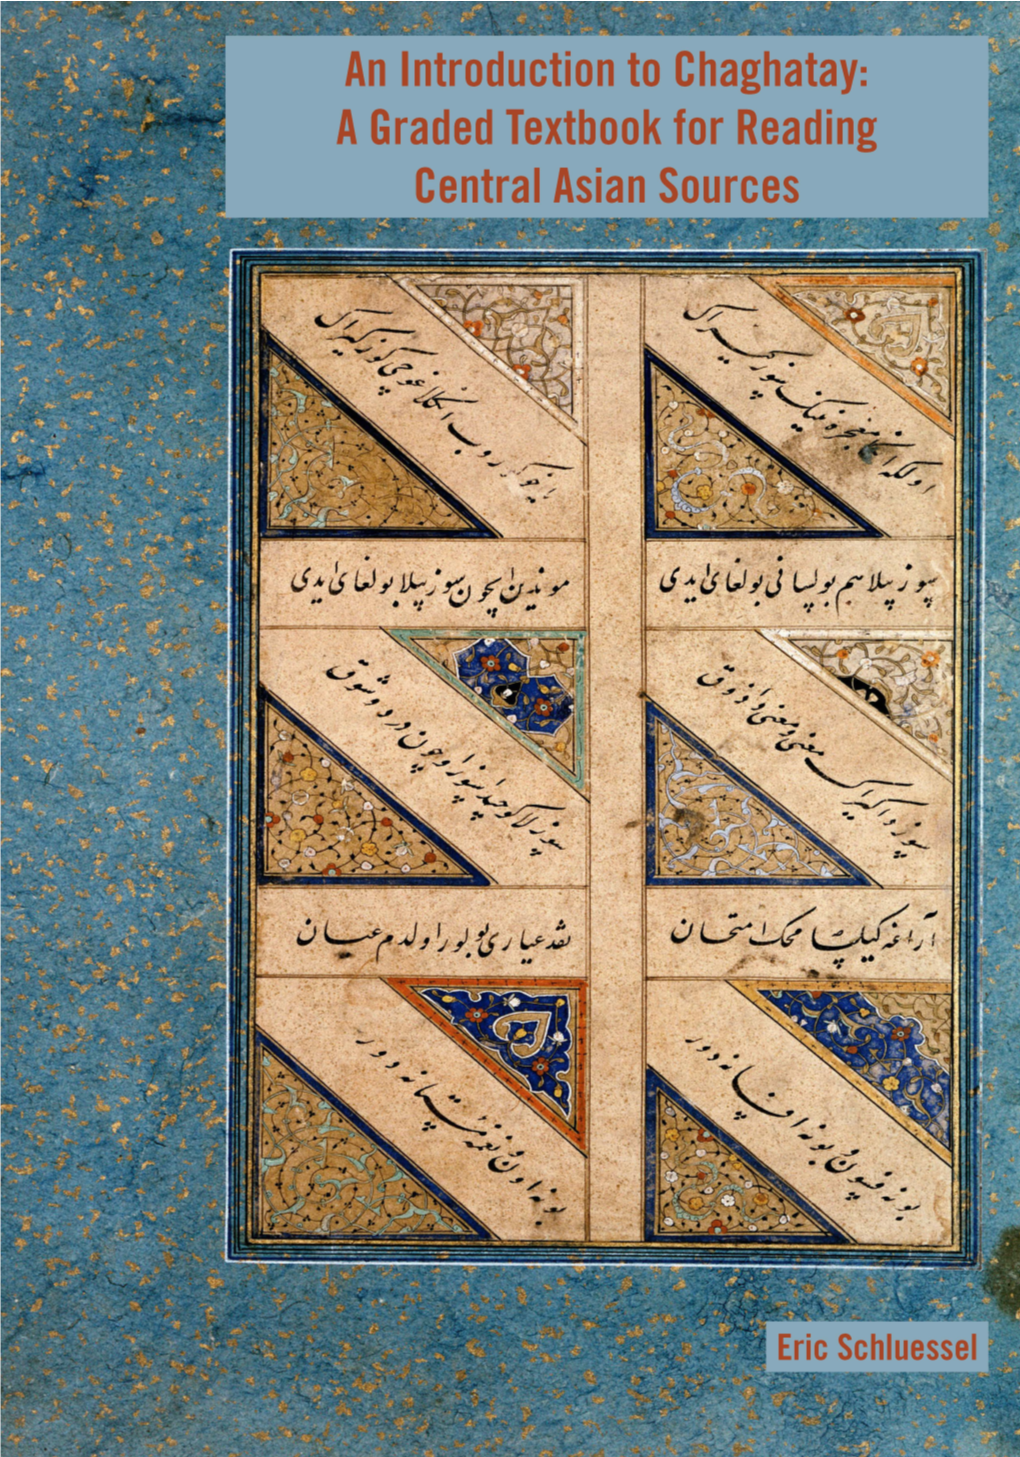 An Introduction to Chaghatay:
A Graded Textbook for Reading
Central Asian Sources
اولکه انکا معجزه دیک سوز کیراک
انکلاغوچی کوز کیراک
سوز بیلا هم بولسا نی بولغای ایدی
موندین ایچون سوز بیلا بولغای ایدی
سوز دا کیراک معنی و معنی دا ذوق
سوزلاکوچیدا سوز اوچون درد و شوق
آراغه کیلسا محک امتحان
نقد عیاری بولور اول دم عیان
بو نه فسون و بو نه افسانه دور
بو نه اون و نغمه مستانه دور
Eric Schluessel